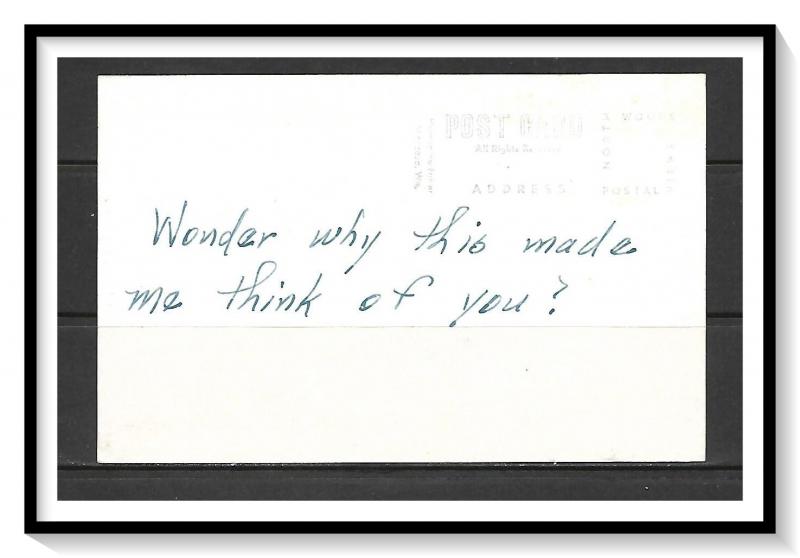 POST CARD
All Rights Reserved
ADDRESS
NORTH WOODS
POSTAL VIEWS
Wonder why this made
me think of you?